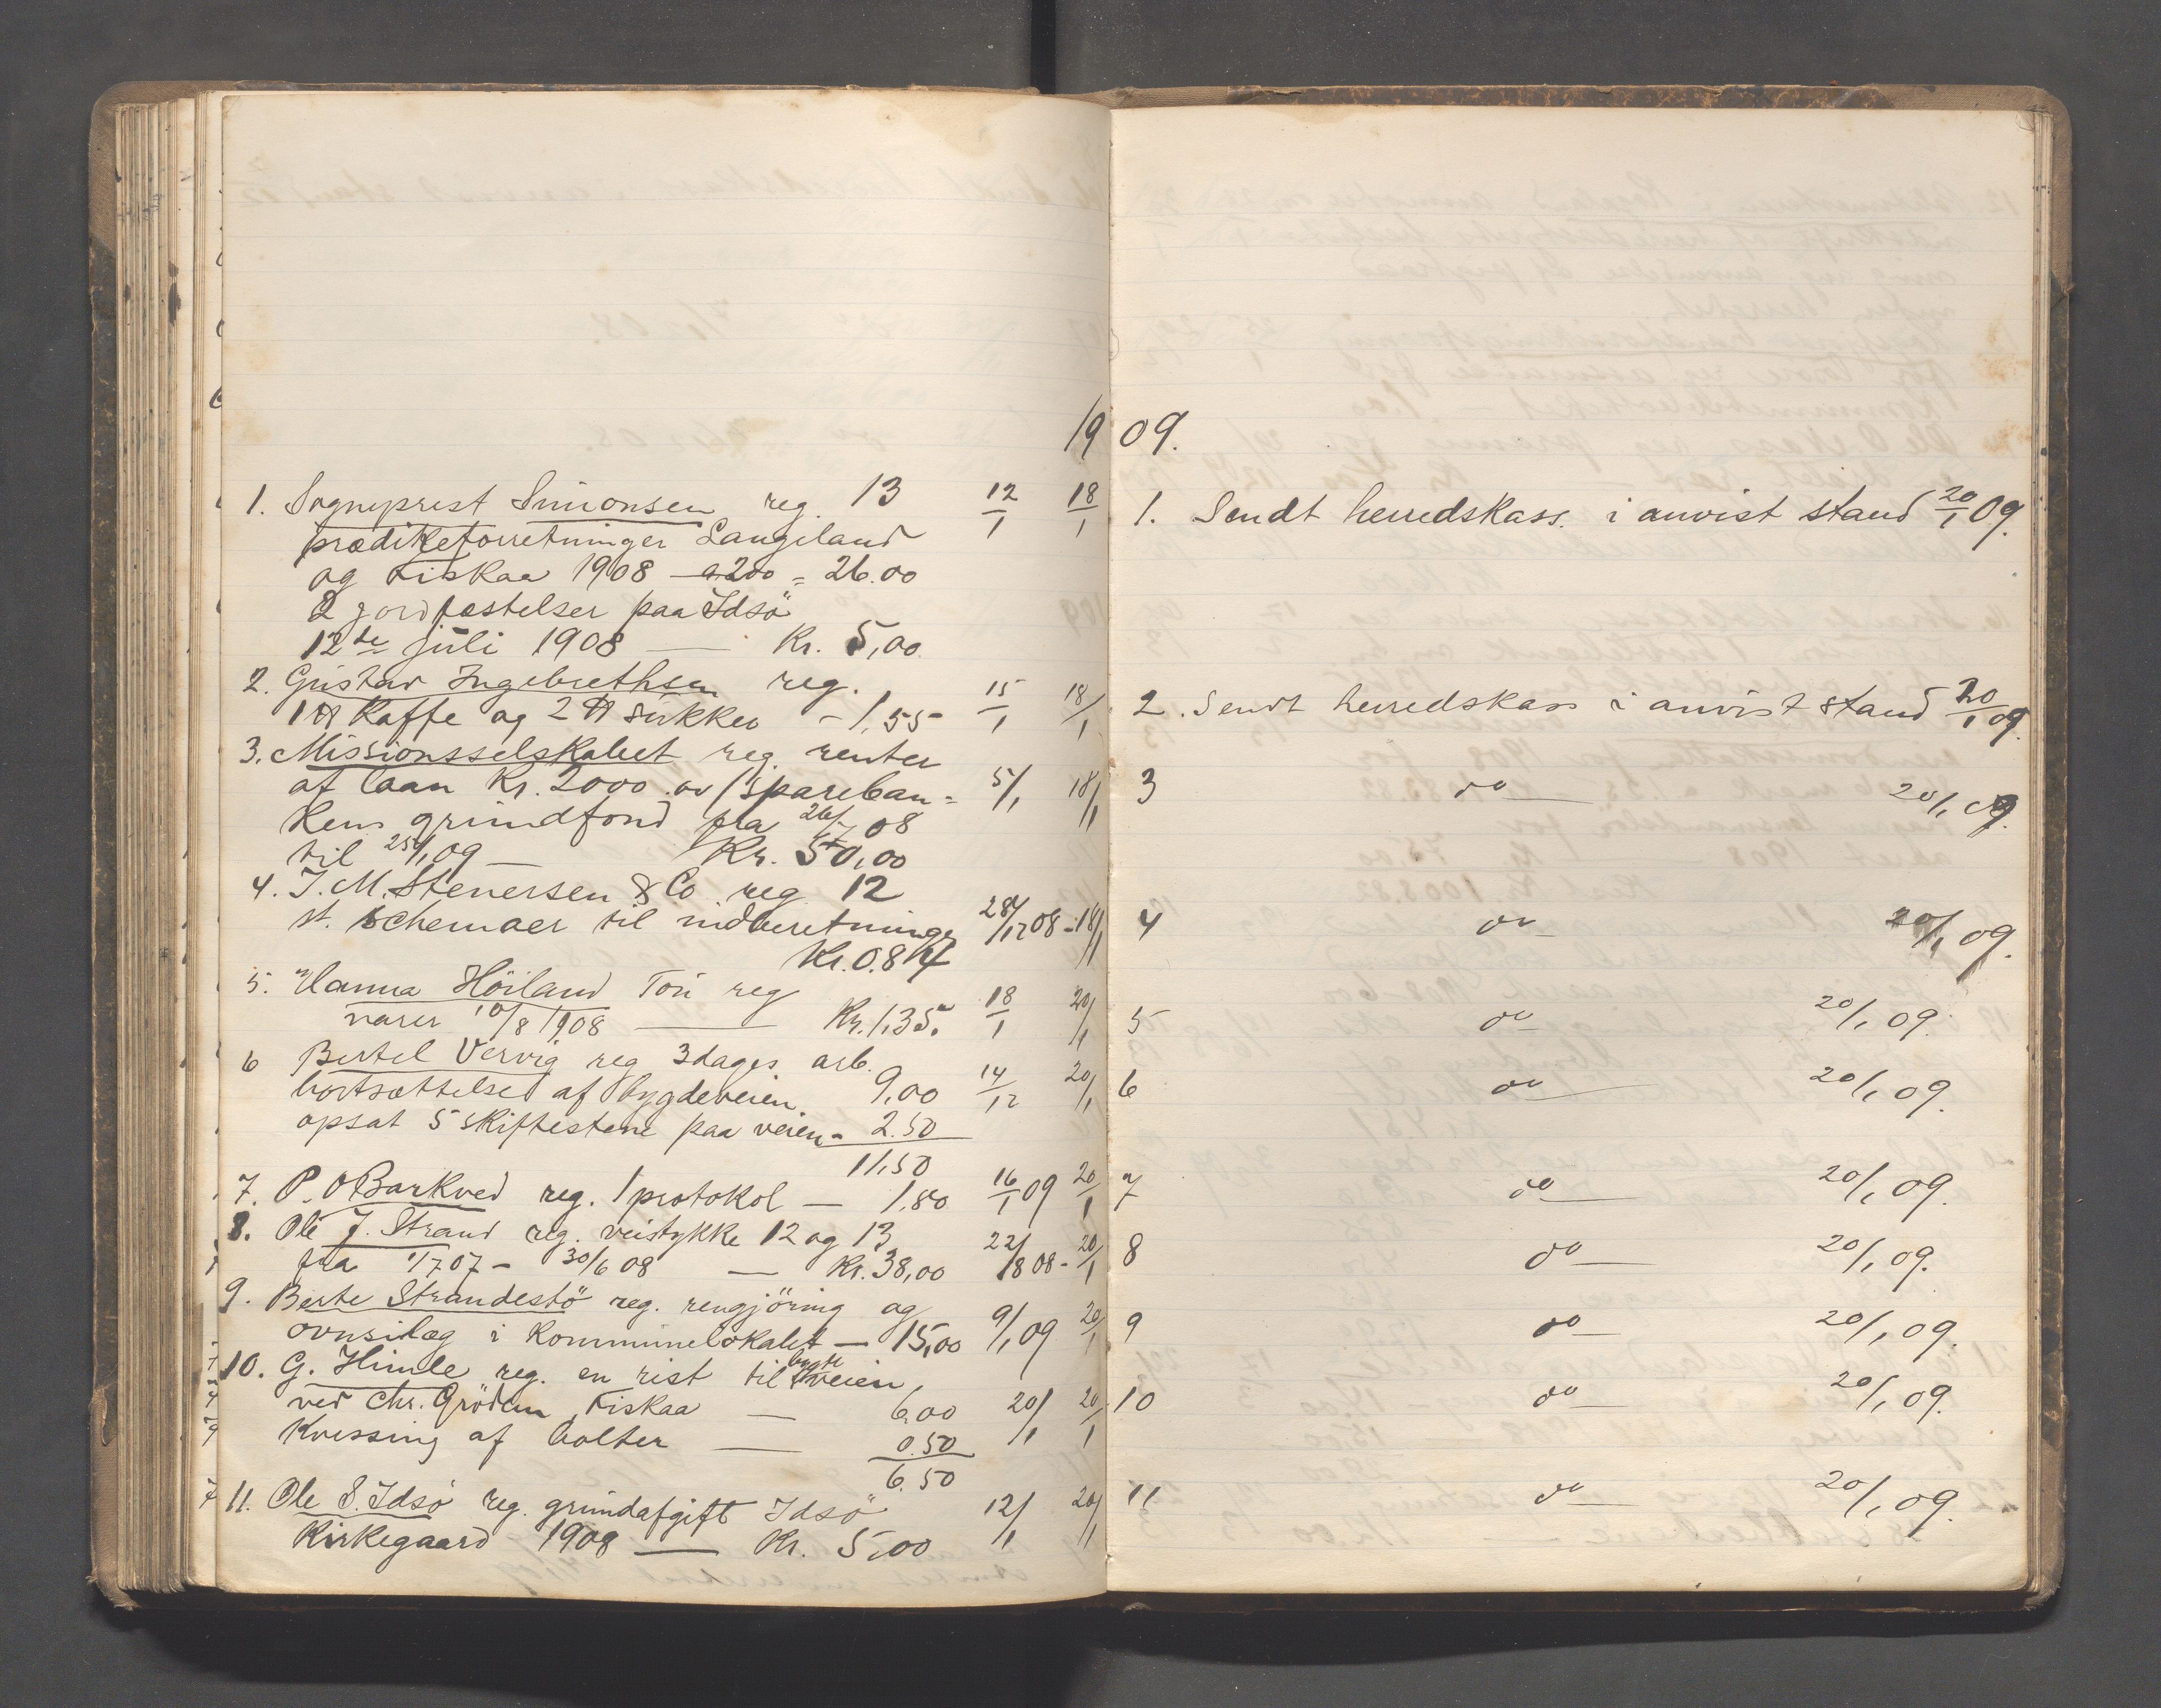 1909.
1. Sogneprest Simonsen reg. 13 12/1 18/1
prædikeforretninger Langeland
og Fiskaa 1908 – a 200 = 26.00
2 jordfæstelser paa Idsö
12te juli 1908 — Kr. 5,00
2. Gustav Ingebrethsen reg. 15/1 18/1
1 ℔ Kaffe og 2 ℔ sukker - 1,55
3. Missionsselskabet reg. renter
af laan Kr. 2000 av Spareban= 5/1 18/1
kens grundfond fra 26/7 08
til 25/1 09 — Kr. 50,00
4. J. M. Stenersen & Co reg 12
st. schemaer til indberetninger 28/12 08 - 18/1
Kr. 0.84
5. Hanna Höiland Tou reg 18/1 20/1
varer 10/8 1908 — Kr. 1,35.
6 Bertel Vervig reg 3 dages arb.
bortsættelse af bygdeveien. 9,00 14/12 20/1
opsat 5 skiftestene paa veien - 2.50
11,50
7. P. O Barkved reg. 1 protokol — 1,80 16/1 09 20/1
8. Ole J. Strand reg. veistykke 12 og 13
fra 1/7 07 - 30/6 08 — Kr. 38,00 22/8 08 - 20/1
9. Berte Strandestö reg. rengjöring og
ovnsilæg i Kommunelokalet — 15,00 9/1 09 20/1
10. G. Himle reg. en rist til bygdeveien,
ved Chr. Grödem Fiskaa — 6,00 20/1 20/1
Kvessing af bolter — 0.50
6.50
11. Ole S. Idsö reg. grundafgift Idsö 12/1 20/1
Kirkegaard 1908 — Kr. 5,00
1. Sendt herredskass. i anvist stand 20/1 09.
2. Sendt herredskass i anvist stand 20/1 09.
3 do — 20/1 09.
4 do — 20/1 09.
5 do — 20/1 09.
6 do — 20/1 09.
7 do — 20/1 09.
8 do — 20/1 09.
9 do — 20/1 09.
10 do — 20/1 09.
11 do — 20/1 09.